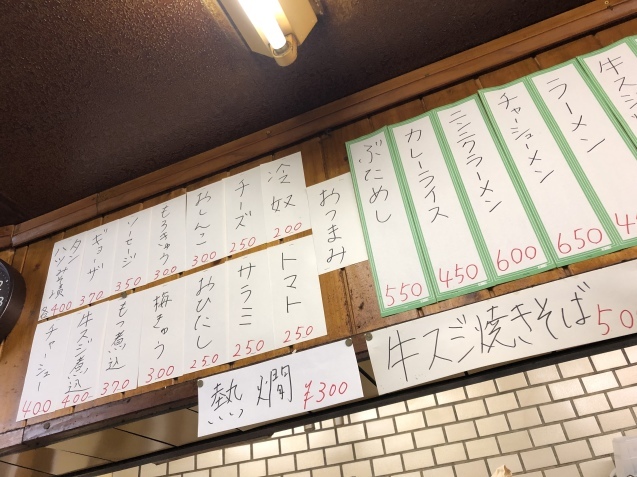 牛スジ
ラーメン
チャーシューメン 650
ニンニクラーメン 600
カレーライス 450
ぶためし 550
おつまみ
冷奴 200
チーズ 250
おしんこ 300
もろきゅう 300
ソーセージ 350
ギョーザ 370
タン
ハツみそ漬 各400
トマト 250
サラミ 250
おひたし 250
梅きゅう 300
もつ煮込 370
牛スジ煮込 400
チャーシュー 400
牛スジ焼きそば
熱燗 ¥300